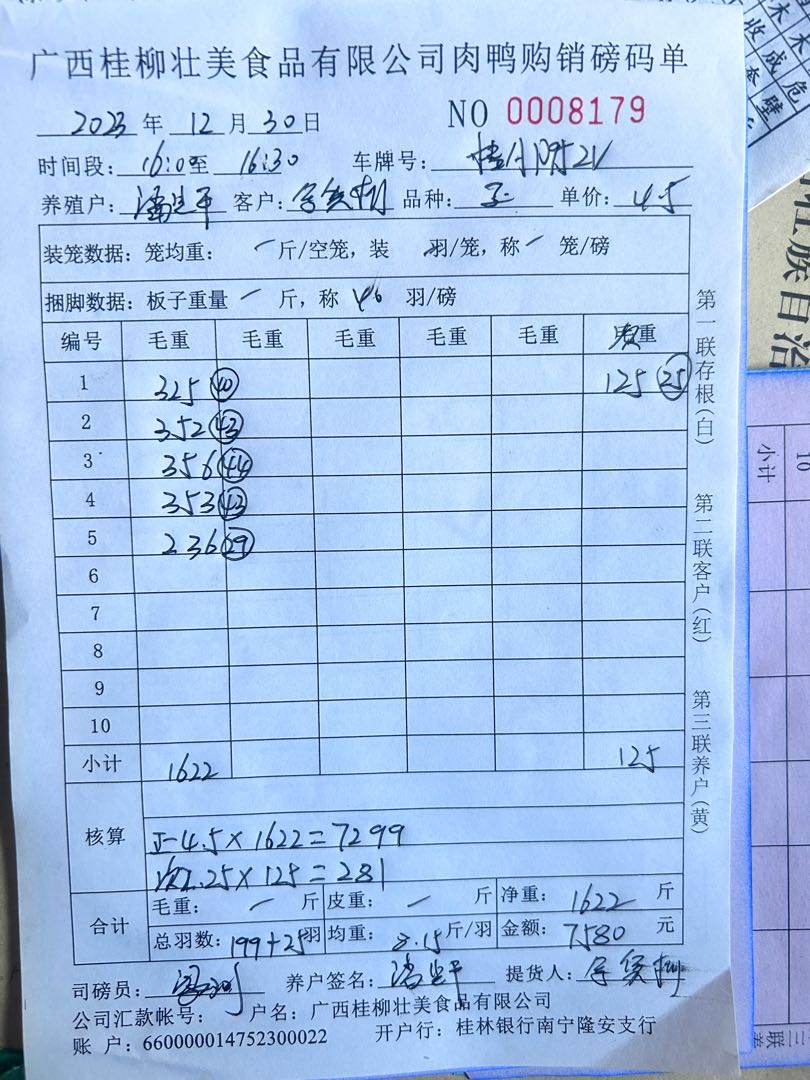 广西桂柳壮美食品有限公司肉鸭购销磅码单
2023年 12月30日 NO 0008179
时间段: 16:0至 16:30 车牌号:
养殖户: 客户: 品种: 正 单价: 4.5
装笼数据: 笼均重: 一 斤/空笼, 装 羽/笼, 称一 笼/磅
捆脚数据: 板子重量 一 斤, 称 羽/磅
编号 毛重 毛重 毛重 毛重 毛重 重
1 325 40 125 25
2 352 43
3 356 44
4 353 43
5 236 29
6
7
8
9
10
小计 1622 125
核算
正-4.5×1622=7299
2.25×125=281
合计
毛重: 一 斤 皮重: 一 斤 净重: 1622 斤
总羽数: 199+25羽 均重: 8.15斤/羽 金额: 7580 元
司磅员: 养户签名: 提货人:
公司汇款帐号: 户名: 广西桂柳壮美食品有限公司
账 户: 660000014752300022 开户行: 桂林银行南宁隆安支行
第一联存根(白) 第二联客户(红) 第三联养户(黄)
收
成危
壁
木
壮族自治
10
小计
三联